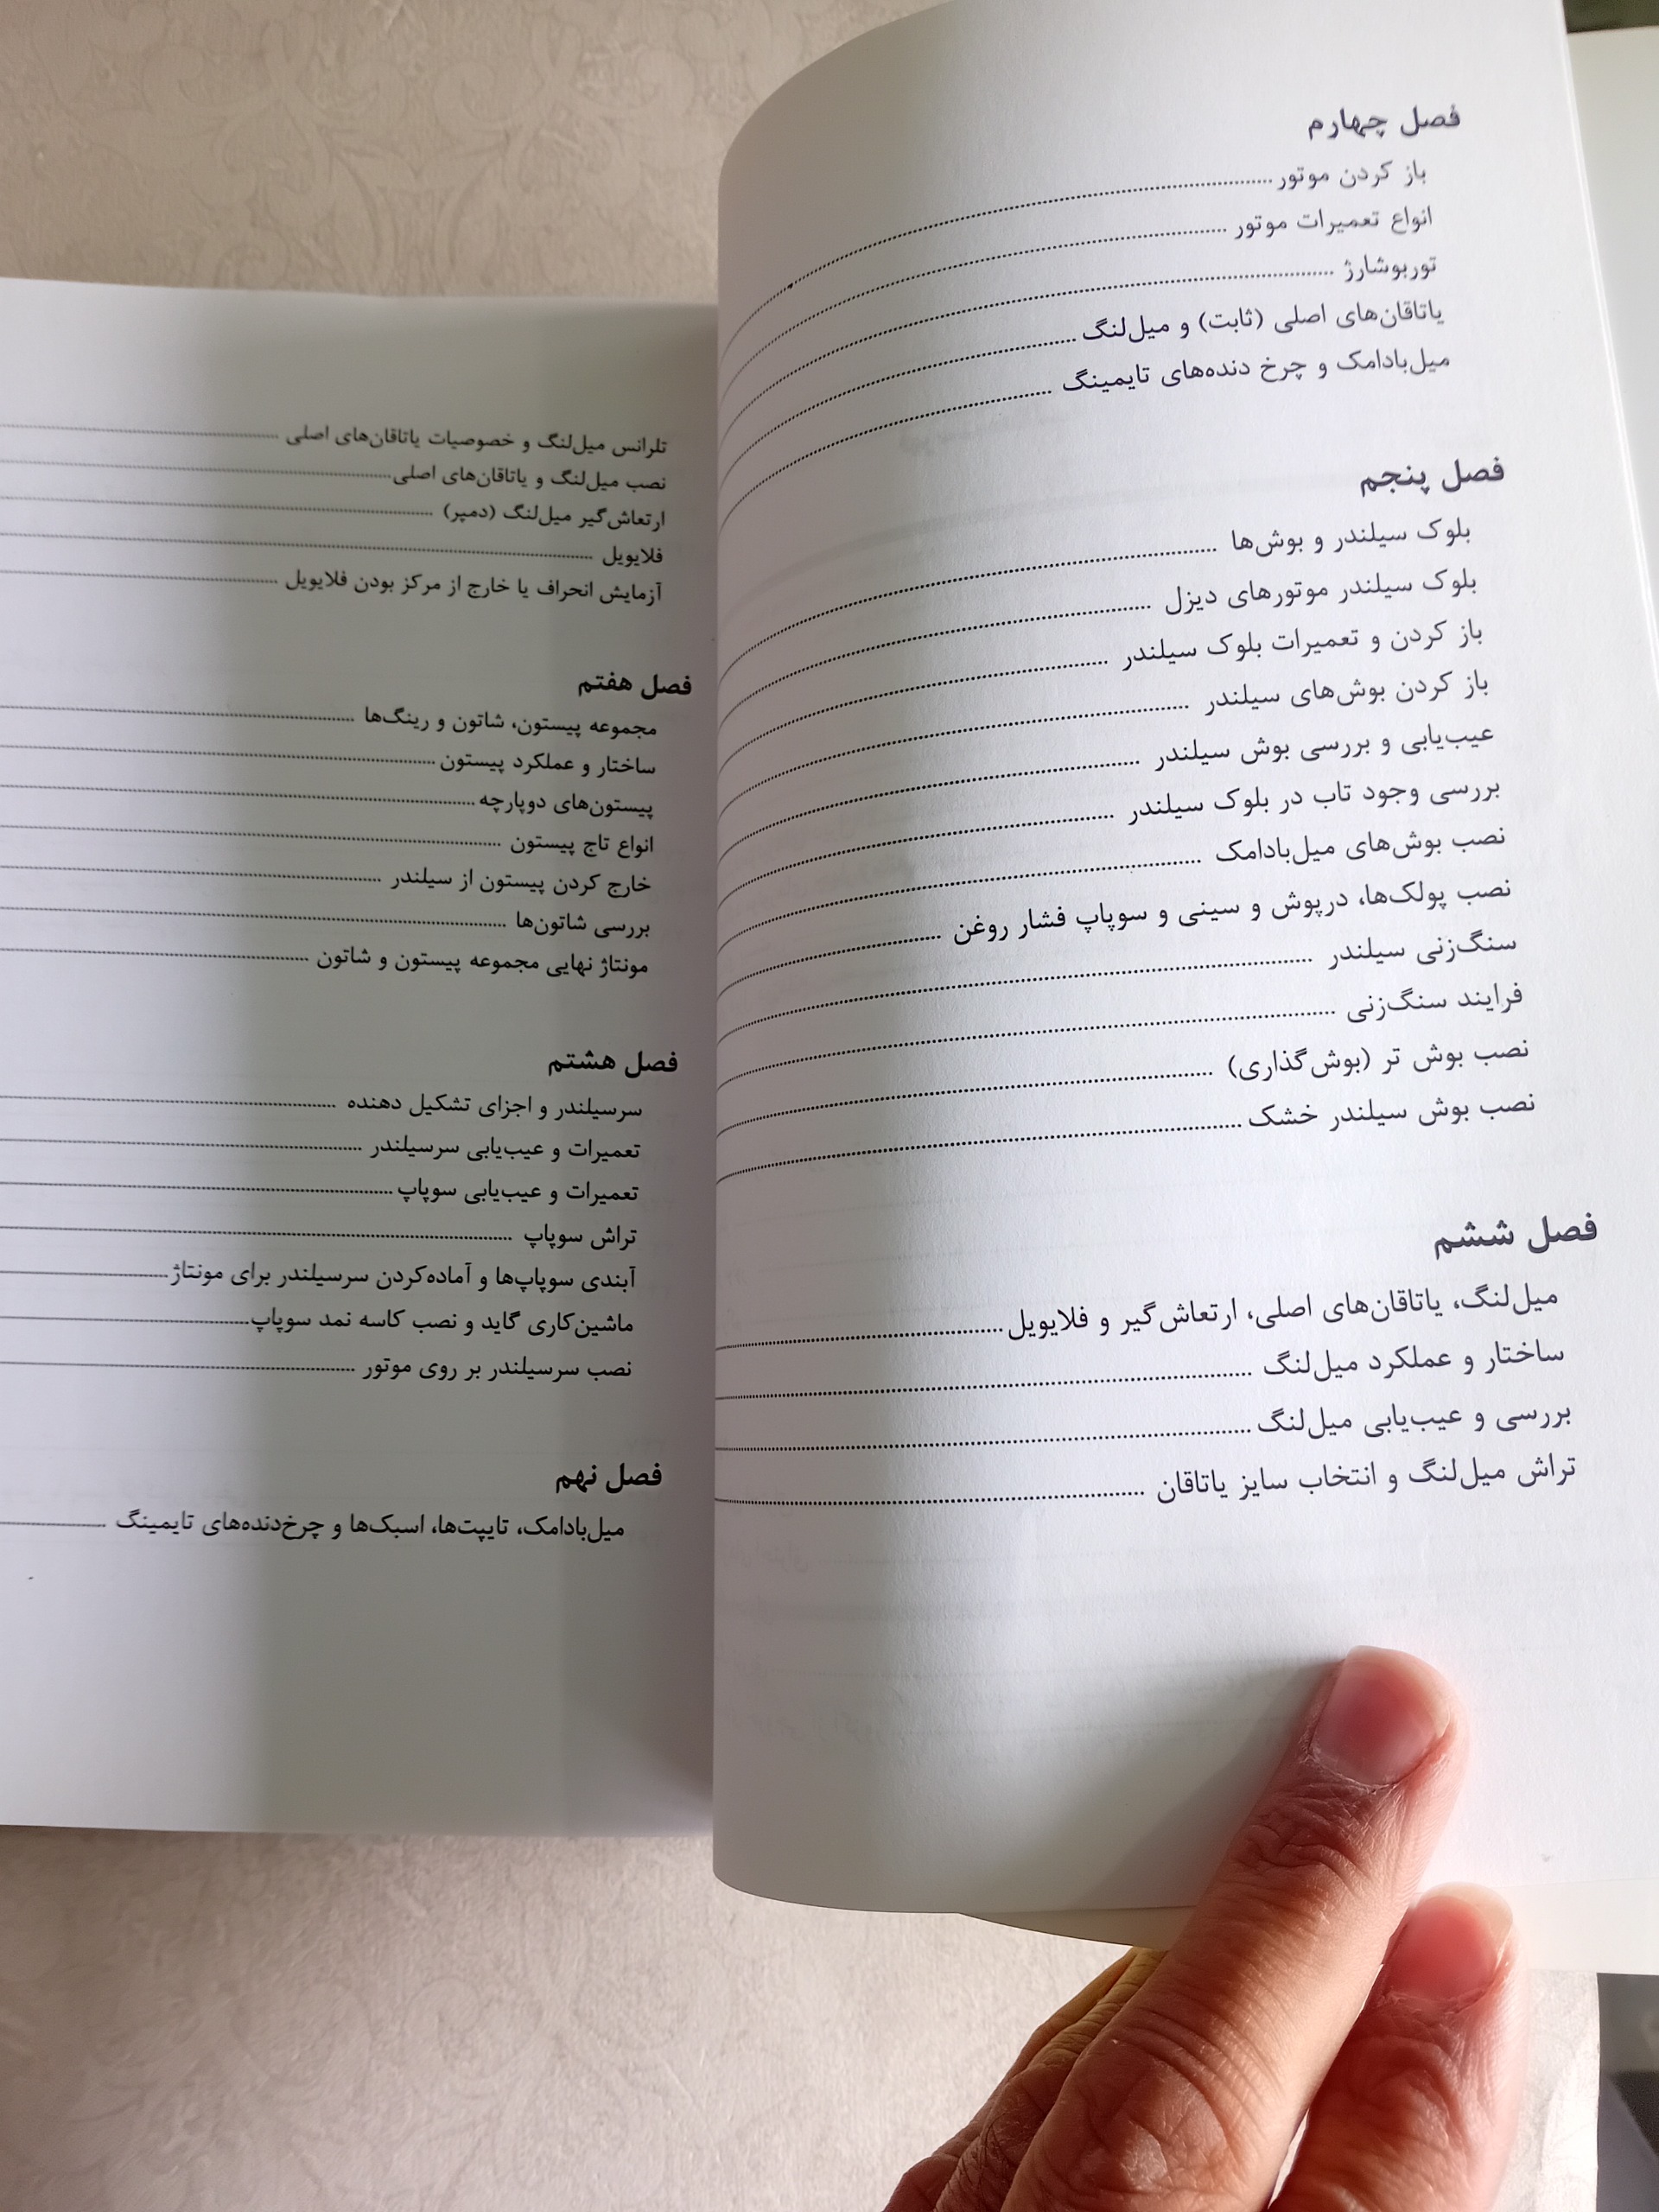 فصل چهارم
باز کردن موتور
انواع تعمیرات موتور
توربوشارژ
یاتاقان‌های اصلی (ثابت) و میل‌لنگ
میل‌بادامک و چرخ دنده‌های تایمینگ
فصل پنجم
بلوک سیلندر و بوش‌ها
بلوک سیلندر موتورهای دیزل
باز کردن و تعمیرات بلوک سیلندر
باز کردن بوش‌های سیلندر
عیب‌یابی و بررسی بوش سیلندر
بررسی وجود تاب در بلوک سیلندر
نصب بوش‌های میل‌بادامک
نصب پولک‌ها، درپوش و سینی و سوپاپ فشار روغن
سنگ‌زنی سیلندر
فرایند سنگ‌زنی
نصب بوش تر (بوش‌گذاری)
نصب بوش سیلندر خشک
فصل ششم
میل‌لنگ، یاتاقان‌های اصلی، ارتعاش‌گیر و فلایویل
ساختار و عملکرد میل‌لنگ
بررسی و عیب‌یابی میل‌لنگ
تراش میل‌لنگ و انتخاب سایز یاتاقان
تلرانس میل‌لنگ و خصوصیات یاتاقان‌های اصلی
نصب میل‌لنگ و یاتاقان‌های اصلی
ارتعاش‌گیر میل‌لنگ (دمپر)
فلایویل
آزمایش انحراف یا خارج از مرکز بودن فلایویل
فصل هفتم
مجموعه پیستون، شاتون و رینگ‌ها
ساختار و عملکرد پیستون
پیستون‌های دوپارچه
انواع تاج پیستون
خارج کردن پیستون از سیلندر
بررسی شاتون‌ها
مونتاژ نهایی مجموعه پیستون و شاتون
فصل هشتم
سرسیلندر و اجزای تشکیل دهنده
تعمیرات و عیب‌یابی سرسیلندر
تعمیرات و عیب‌یابی سوپاپ
تراش سوپاپ
آبندی سوپاپ‌ها و آماده‌کردن سرسیلندر برای مونتاژ
ماشین‌کاری گاید و نصب کاسه نمد سوپاپ
نصب سرسیلندر بر روی موتور
فصل نهم
میل‌بادامک، تایپت‌ها، اسبک‌ها و چرخ‌دنده‌های تایمینگ